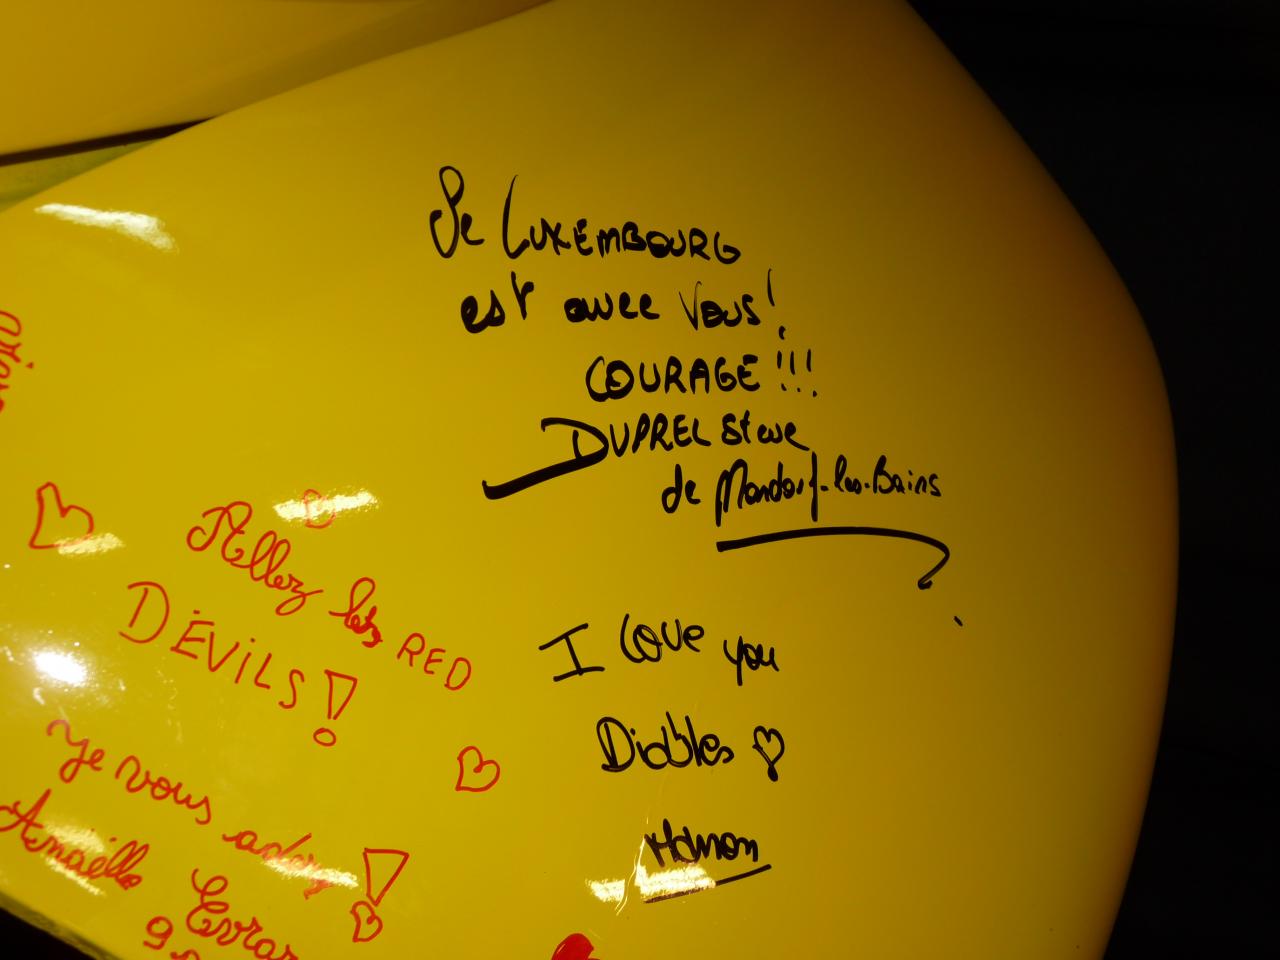 Le LUXEMBOURG
est avec Vous!
COURAGE!!!
DUPREL Steve
de Mondorf-les-Bains
Allez les RED
DEVILS!
Je vous adore!
Amaëlle Evrar
I love you
Diables
Manon